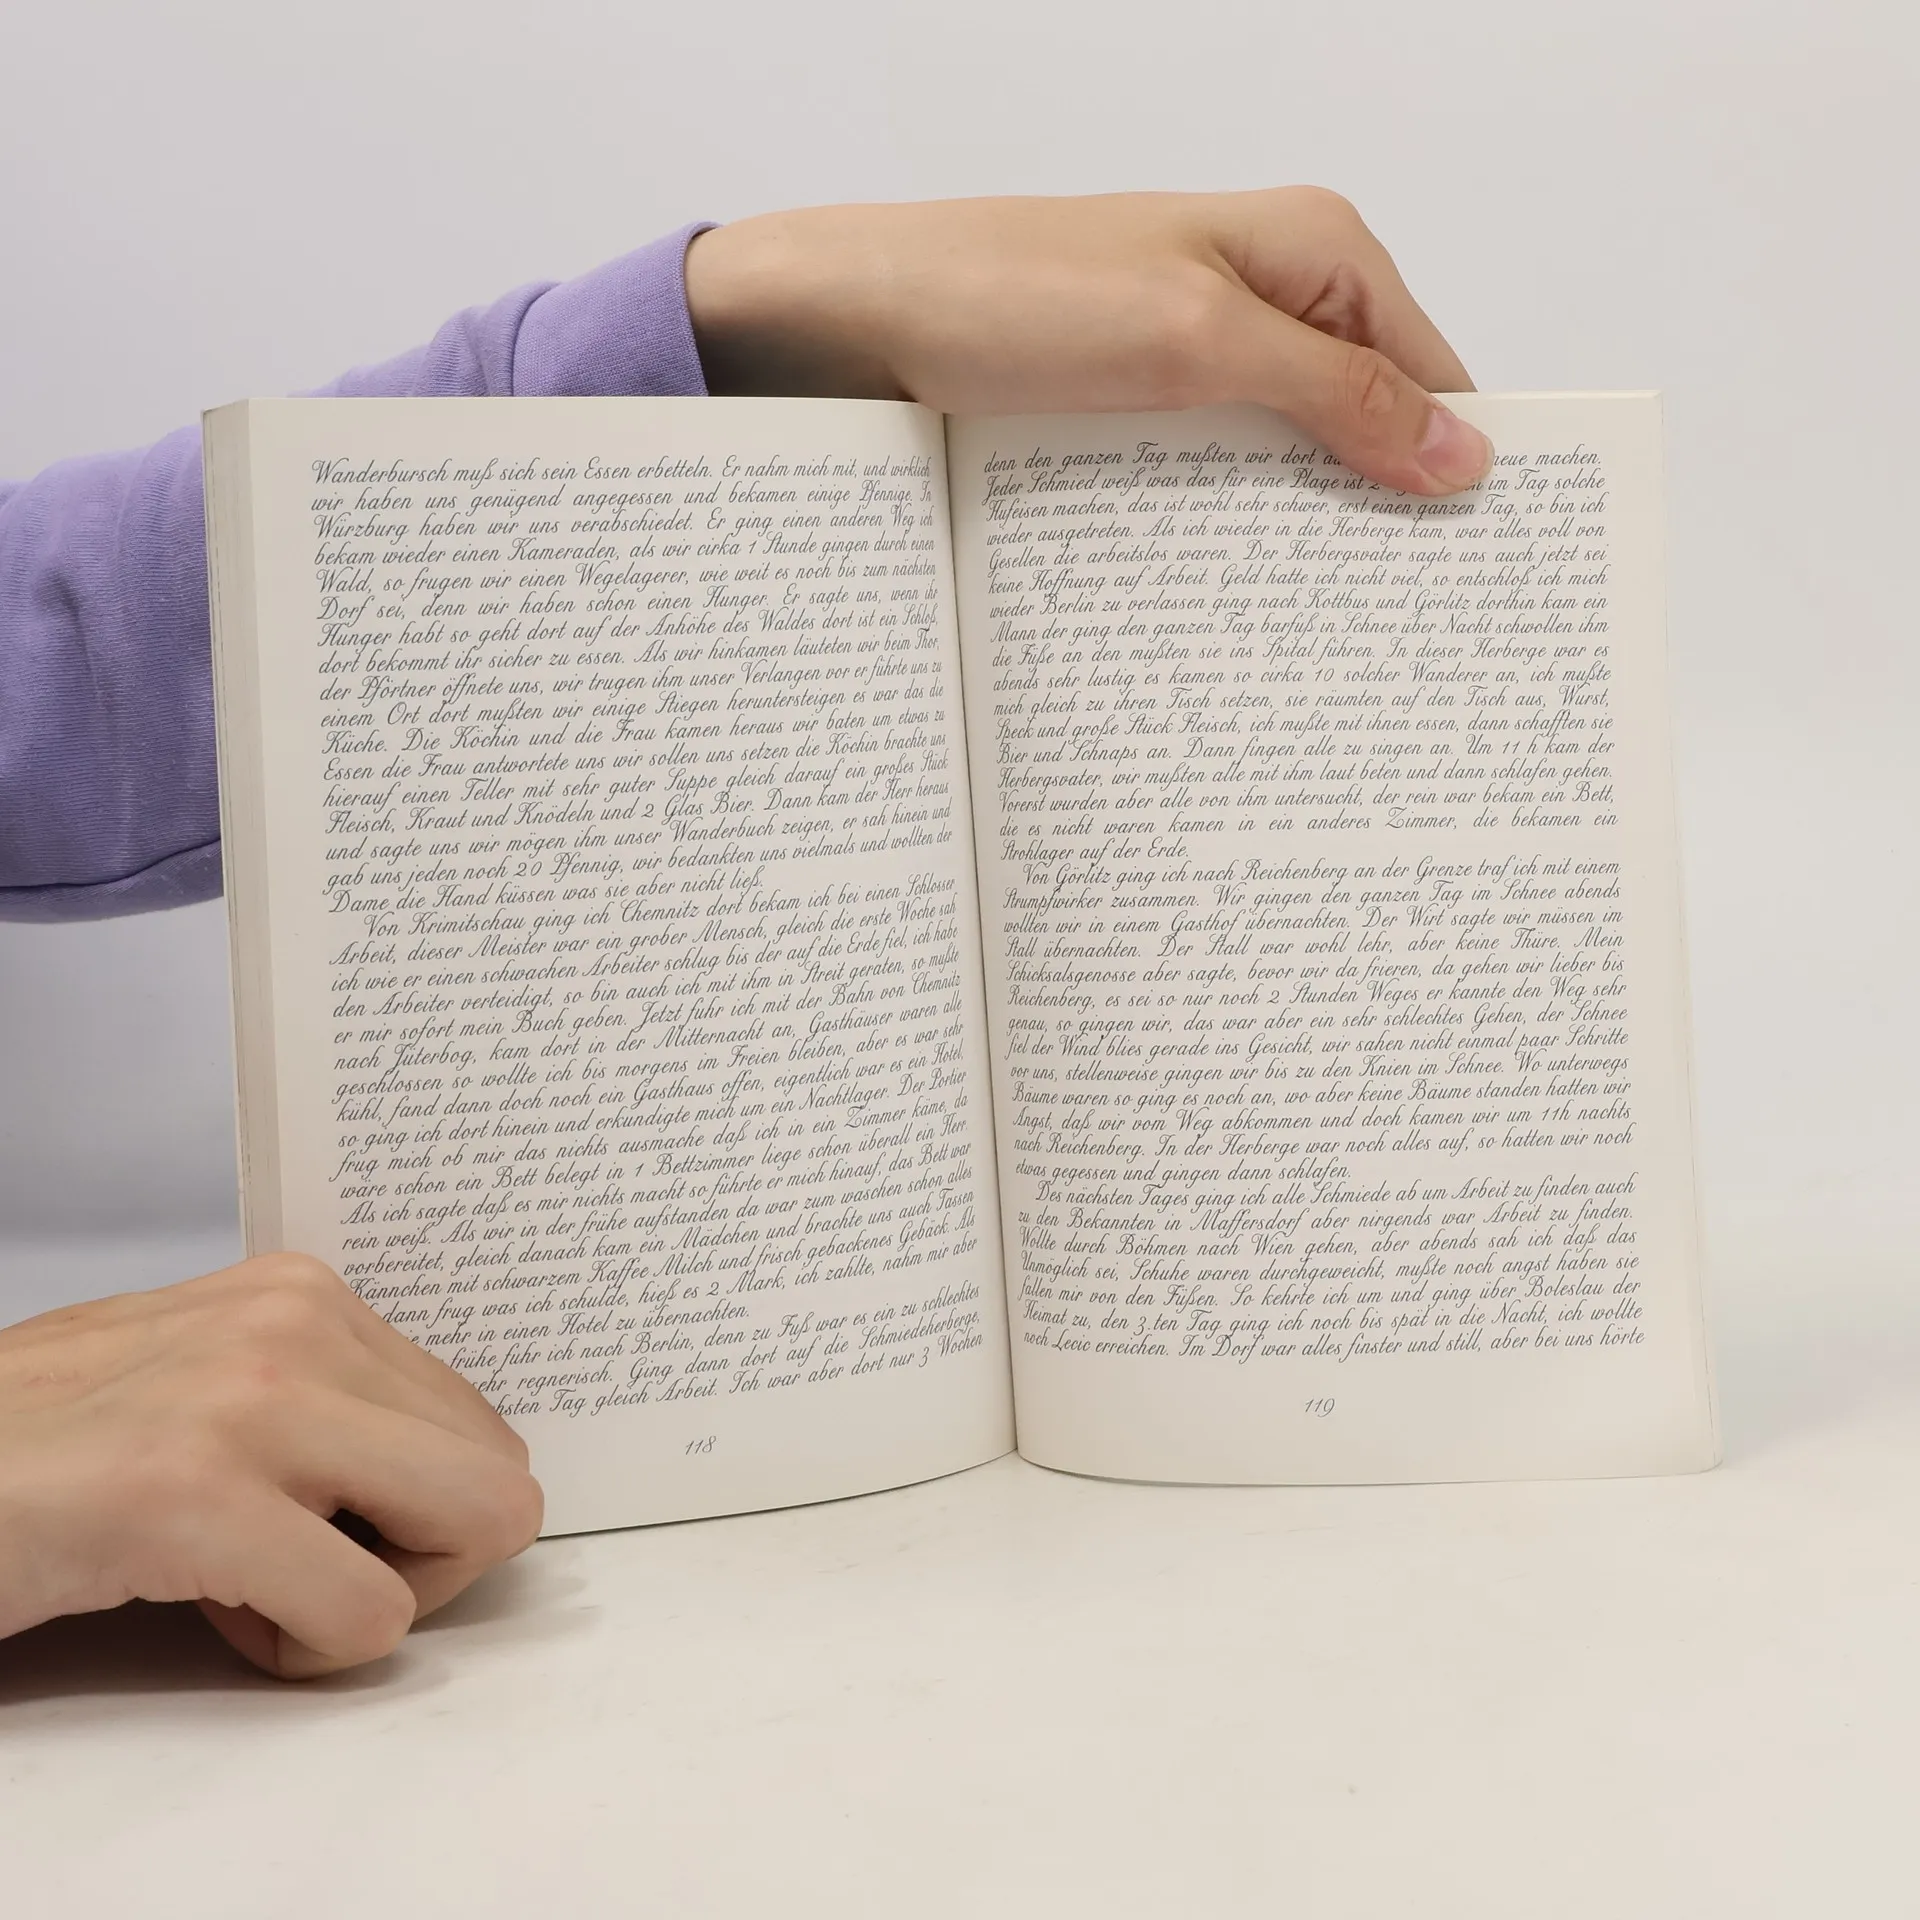 Wanderbursch muß sich sein Essen erbetteln. Er nahm mich mit, und wirklich
wir haben uns genügend angegessen und bekamen einige Pfennige. In
Würzburg haben wir uns verabschiedet. Er ging einen anderen Weg ich
bekam wieder einen Kameraden, als wir cirka 1 Stunde gingen durch einen
Wald, so frugen wir einen Wegelagerer, wie weit es noch bis zum nächsten
Dorf sei, denn wir haben schon einen Hunger. Er sagte uns, wenn ihr
Hunger habt so geht dort auf der Anhöhe des Waldes dort ist ein Schloß,
dort bekommt ihr sicher zu essen. Als wir hinkamen läuteten wir beim Thor,
der Pförtner öffnete uns, wir trugen ihm unser Verlangen vor er führte uns zu
einem Ort dort mußten wir einige Stiegen heruntersteigen es war das die
Küche. Die Köchin und die Frau kamen heraus wir baten um etwas zu
Essen die Frau antwortete uns wir sollen uns setzen die Köchin brachte uns
hierauf einen Teller mit sehr guter Suppe gleich darauf ein großes Stück
Fleisch, Kraut und Knödeln und 2 Glas Bier. Dann kam der Herr heraus
und sagte uns wir mögen ihm unser Wanderbuch zeigen, er sah hinein und
gab uns jeden noch 20 Pfennig, wir bedankten uns vielmals und wollten der
Dame die Hand küssen was sie aber nicht ließ.
Von Krimitschau ging ich Chemnitz dort bekam ich bei einen Schlosser
Arbeit, dieser Meister war ein grober Mensch, gleich die erste Woche sah
ich wie er einen schwachen Arbeiter schlug bis der auf die Erde fiel, ich habe
den Arbeiter verteidigt, so bin auch ich mit ihm in Streit geraten, so mußte
er mir sofort mein Buch geben. Jetzt fuhr ich mit der Bahn von Chemnitz
nach Jüterbog, kam dort in der Mitternacht an, Gasthäuser waren alle
geschlossen so wollte ich bis morgens im Freien bleiben, aber es war sehr
kühl, fand dann doch noch ein Gasthaus offen, eigentlich war es ein Hotel,
so ging ich dort hinein und erkundigte mich um ein Nachtlager. Der Portier
frug mich ob mir das nichts ausmache daß ich in ein Zimmer käme, da
wäre schon ein Bett belegt in 1 Bettzimmer liege schon überall ein Herr.
Als ich sagte daß es mir nichts macht so führte er mich hinauf, das Bett war
rein weiß. Als wir in der frühe aufstanden da war zum waschen schon alles
vorbereitet, gleich danach kam ein Mädchen und brachte uns auch Tassen
Kännchen mit schwarzem Kaffee Milch und frisch gebackenes Gebäck. Als
dann frug was ich schulde, hieß es 2 Mark, ich zahlte, nahm mir aber
mehr in einen Hotel zu übernachten.
frühe fuhr ich nach Berlin, denn zu Fuß war es ein zu schlechtes
sehr regnerisch. Ging dann dort auf die Schmiedeherberge,
Tag gleich Arbeit. Ich war aber dort nur 3 Wochen
118
denn den ganzen Tag mußten wir dort neue machen.
Jeder Schmied weiß was das für eine Plage ist im Tag solche
Hufeisen machen, das ist wohl sehr schwer, erst einen ganzen Tag, so bin ich
wieder ausgetreten. Als ich wieder in die Herberge kam, war alles voll von
Gesellen die arbeitslos waren. Der Herbergsvater sagte uns auch jetzt sei
keine Hoffnung auf Arbeit. Geld hatte ich nicht viel, so entschloß ich mich
wieder Berlin zu verlassen ging nach Kottbus und Görlitz dorthin kam ein
Mann der ging den ganzen Tag barfuß in Schnee über Nacht schwollen ihm
die Füße an den mußten sie ins Spital führen. In dieser Herberge war es
abends sehr lustig es kamen so cirka 10 solcher Wanderer an, ich mußte
mich gleich zu ihren Tisch setzen, sie räumten auf den Tisch aus, Wurst,
Speck und große Stück Fleisch, ich mußte mit ihnen essen, dann schafften sie
Bier und Schnaps an. Dann fingen alle zu singen an. Um 11 h kam der
Herbergsvater, wir mußten alle mit ihm laut beten und dann schlafen gehen.
Vorerst wurden aber alle von ihm untersucht, der rein war bekam ein Bett,
die es nicht waren kamen in ein anderes Zimmer, die bekamen ein
Strohlager auf der Erde.
Von Görlitz ging ich nach Reichenberg an der Grenze traf ich mit einem
Strumpfwirker zusammen. Wir gingen den ganzen Tag im Schnee abends
wollten wir in einem Gasthof übernachten. Der Wirt sagte wir müssen im
Stall übernachten. Der Stall war wohl lehr, aber keine Thüre. Mein
Schicksalsgenosse aber sagte, bevor wir da frieren, da gehen wir lieber bis
Reichenberg, es sei so nur noch 2 Stunden Weges er kannte den Weg sehr
genau, so gingen wir, das war aber ein sehr schlechtes Gehen, der Schnee
fiel der Wind blies gerade ins Gesicht, wir sahen nicht einmal paar Schritte
vor uns, stellenweise gingen wir bis zu den Knien im Schnee. Wo unterwegs
Bäume waren so ging es noch an, wo aber keine Bäume standen hatten wir
Angst, daß wir vom Weg abkommen und doch kamen wir um 11h nachts
nach Reichenberg. In der Herberge war noch alles auf, so hatten wir noch
etwas gegessen und gingen dann schlafen.
Des nächsten Tages ging ich alle Schmiede ab um Arbeit zu finden auch
zu den Bekannten in Maffersdorf aber nirgends war Arbeit zu finden.
Wollte durch Böhmen nach Wien gehen, aber abends sah ich daß das
Unmöglich sei, Schuhe waren durchgeweicht, mußte noch angst haben sie
fallen mir von den Füßen. So kehrte ich um und ging über Boleslau der
Heimat zu, den 3.ten Tag ging ich noch bis spät in die Nacht, ich wollte
noch Lecic erreichen. Im Dorf war alles finster und still, aber bei uns hörte
119